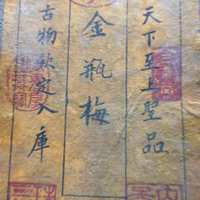 天下至上聖品
金瓶梅
古物欽定入庫